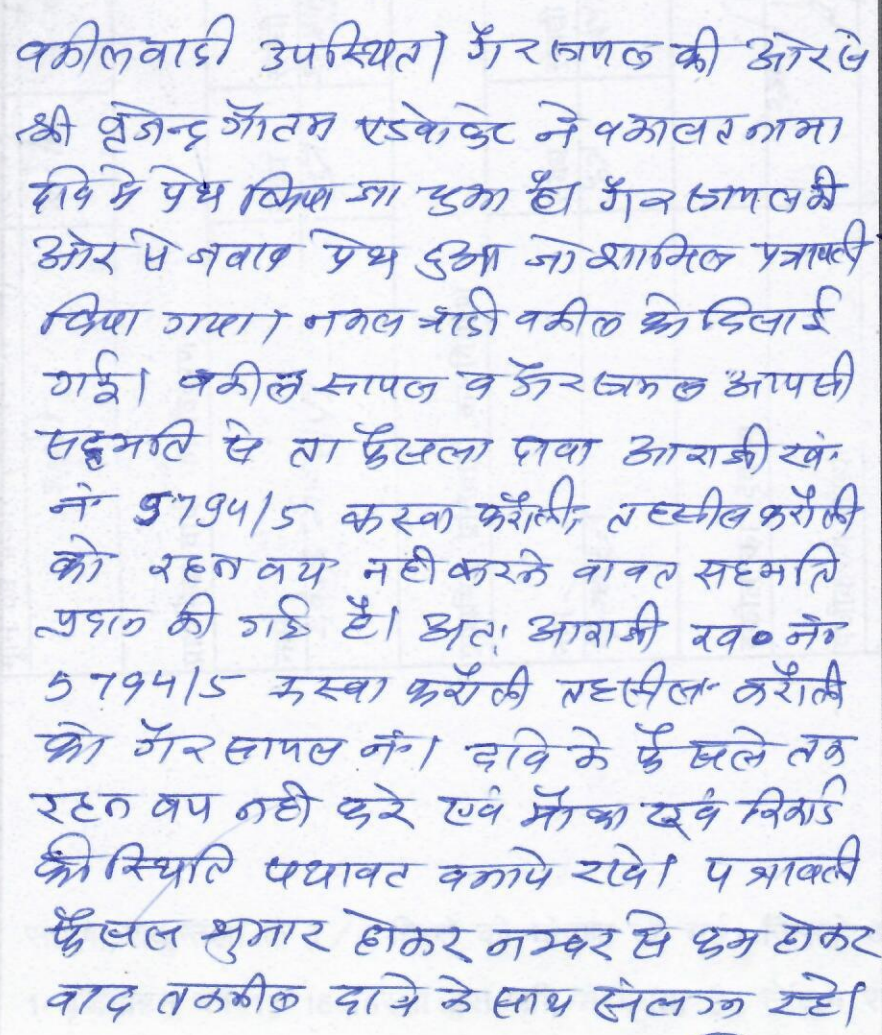 वकीलवादी उपस्थित। गैर सायल की ओर से
श्री बृजेन्द्र गौतम एडवोकेट ने वकालत नामा
दावे मे पेश किया जा चुका है। गैर सायल की
ओर से जवाब पेश हुआ जो शामिल पत्रावली
किया गया। नकल वादी वकील को दिलाई
गई। वकील सायल व गैर सायल आपसी
सहमति से ता फैसला दावा आराजी ख॰
नं॰ 5794/5 कस्वा करौली, तहसील करौली
को रहन वय नही करने वावत सहमति
प्रदान की गई है। अतः आराजी ख॰ नं॰
5794/5 कस्वा करौली तहसील करौली
को गैर सायल नं॰ 1 दावे के फैसले तक
रहन वय नही करे एवं मौका एवं रिकार्ड
की स्थिति यथावत बनाये रखे। पत्रावली
फैसल शुमार होकर नम्बर से कम होकर
वाद तकमील दावे के साथ संलग्न रहे।